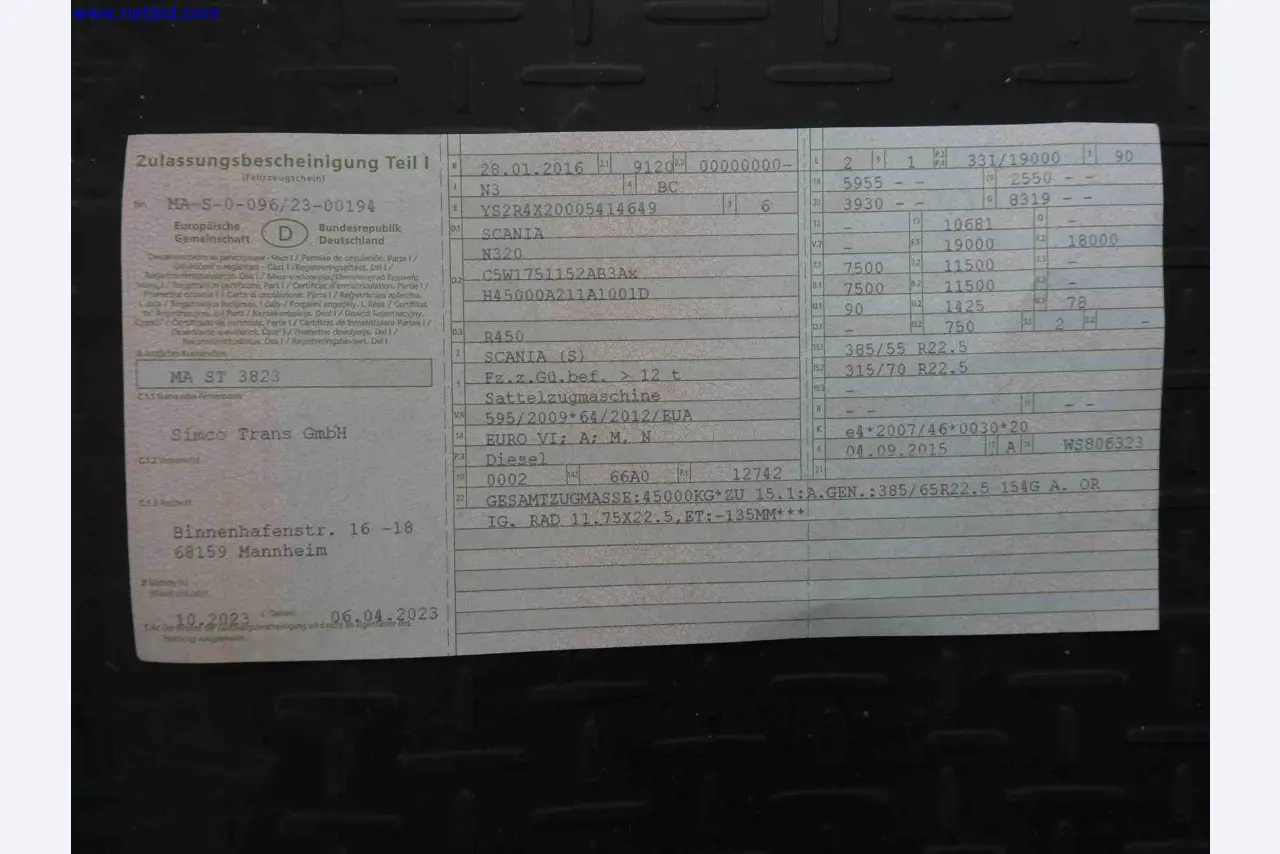 www.netbid.com
Zulassungsbescheinigung Teil I
(Fahrzeugschein)
Nr. MA-S-0-096/23-00194
Europäische Gemeinschaft
D
Bundesrepublik Deutschland
MA ST 3823
Simco Trans GmbH
Binnenhafenstr. 16 -18
68159 Mannheim
10.2023 06.04.2023
B 28.01.2016 2.1 9120 2.2 00000000-
J N3 4 BC
E YS2R4X20005414649 3 6
D.1 SCANIA
N320
D.2 C5W1751152AB3Ax
H45000A211A1001D
D.3 R450
2 SCANIA (S)
5 Fz.z.Gü.bef. > 12 t
Sattelzugmaschine
V.9 595/2009*64/2012/EUA
14 EURO VI; A; M, N
P.3 Diesel
10 0002 14.1 66A0 P.1 12742
22 GESAMTZUGMASSE:45000KG*ZU 15.1:A.GEN.:385/65R22.5 154G A. OR
IG. RAD 11.75X22.5,ET:-135MM***
L 2 9 1 P.2 P.4 331/19000 T 90
18 5955 - - 19 2550 - -
20 3930 - - G 8319 - -
12 - 13 10681 Q -
V.7 - F.1 19000 F.2 18000
7.1 7500 7.2 11500 7.3 -
8.1 7500 8.2 11500 8.3 -
U.1 90 U.2 1425 U.3 78
O.1 - O.2 750 S.1 2 S.2 -
15.1 385/55 R22.5
15.2 315/70 R22.5
15.3 -
R - - 11 - -
K e4*2007/46*0030*20
6 04.09.2015 17 A 16 WS806323
21